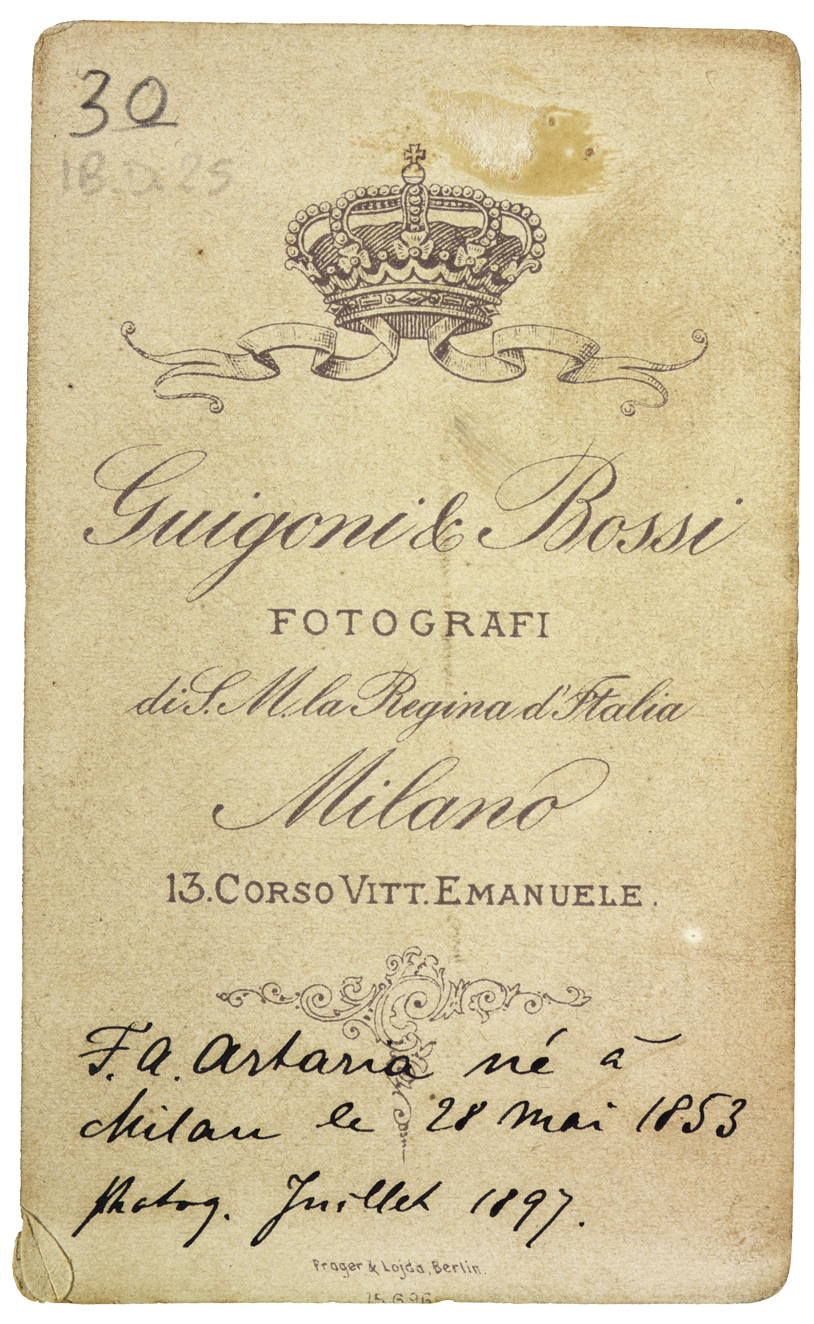 30
18.D.25
Guigoni & Bossi
FOTOGRAFI
di S. M. la Regina d'Italia
Milano
13. CORSO VITT. EMANUELE.
F. A. Artaria né à
Milan le 28 Mai 1853
Photog. Juillet 1897.
Prager & Lojda, Berlin.
15 6 96